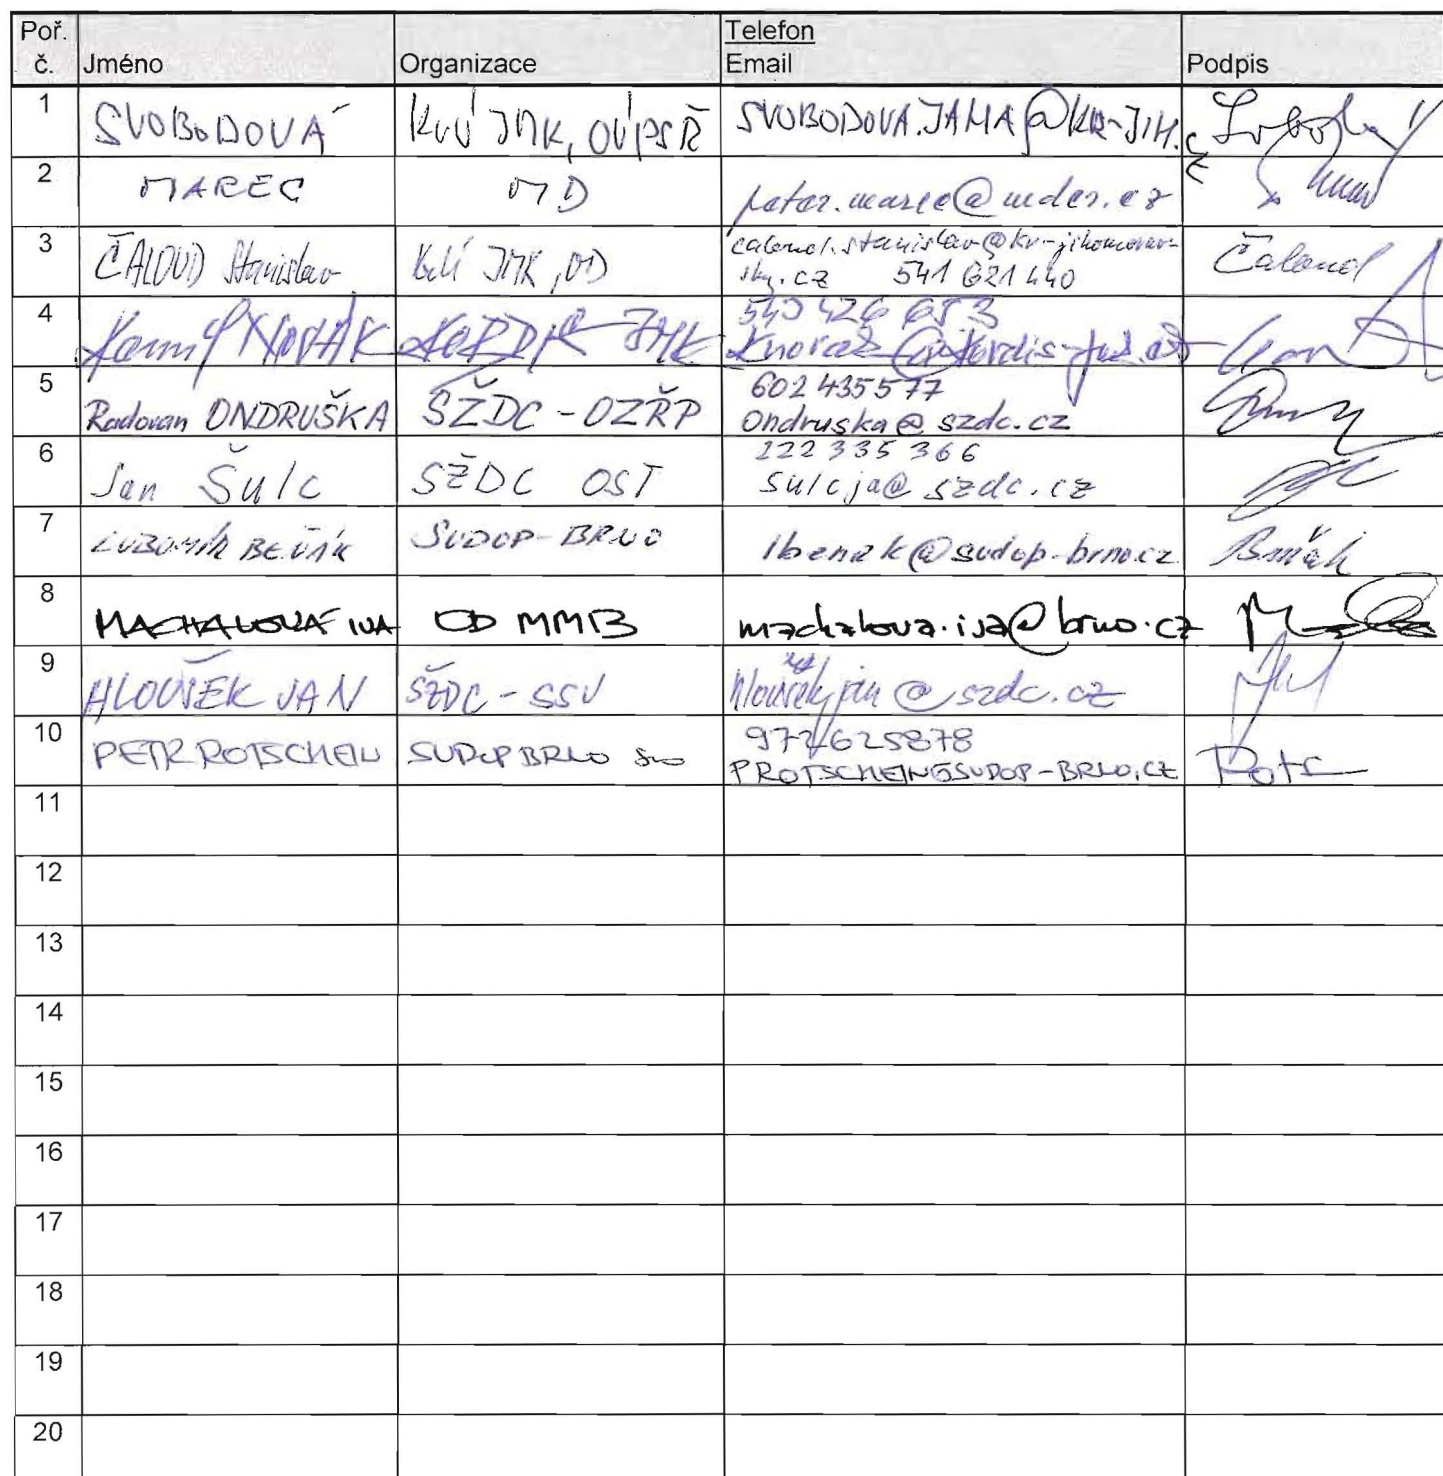 Poř. č. Jméno Organizace Telefon Email Podpis
1 SVOBODOVÁ KÚ JMK, OÚPSŘ SVOBODOVA.JANA@KR-JIH.CZ
2 MAREC MD petar.marec@mdcr.cz
3 ČALOUD Stanislav KÚ JMK, OD caloud.stanislav@kr-jihomoravsky.cz 541 621 440 Čaloud
4 Kamil NOVÁK KORDIS JMK 543 426 653 knovak@kordis-jmk.cz
5 Radovan ONDRUŠKA SŽDC - OZŘP 602 435577 Ondruska@szdc.cz
6 Jan Šulc SŽDC OST 222 335 366 Sulcja@szdc.cz
7 LUBOMÍR BEŇÁK SUDOP-BRNO lbenak@sudop-brno.cz Beňák
8 MACHALOVÁ IVA OD MMB machalova.iva@brno.cz
9 HLOUŠEK JAN SŽDC - SSV @szdc.cz
10 PETR ROTSCHEIN SUDOP BRNO 972625878 PROTSCHEIN@SUDOP-BRNO.CZ
11
12
13
14
15
16
17
18
19
20